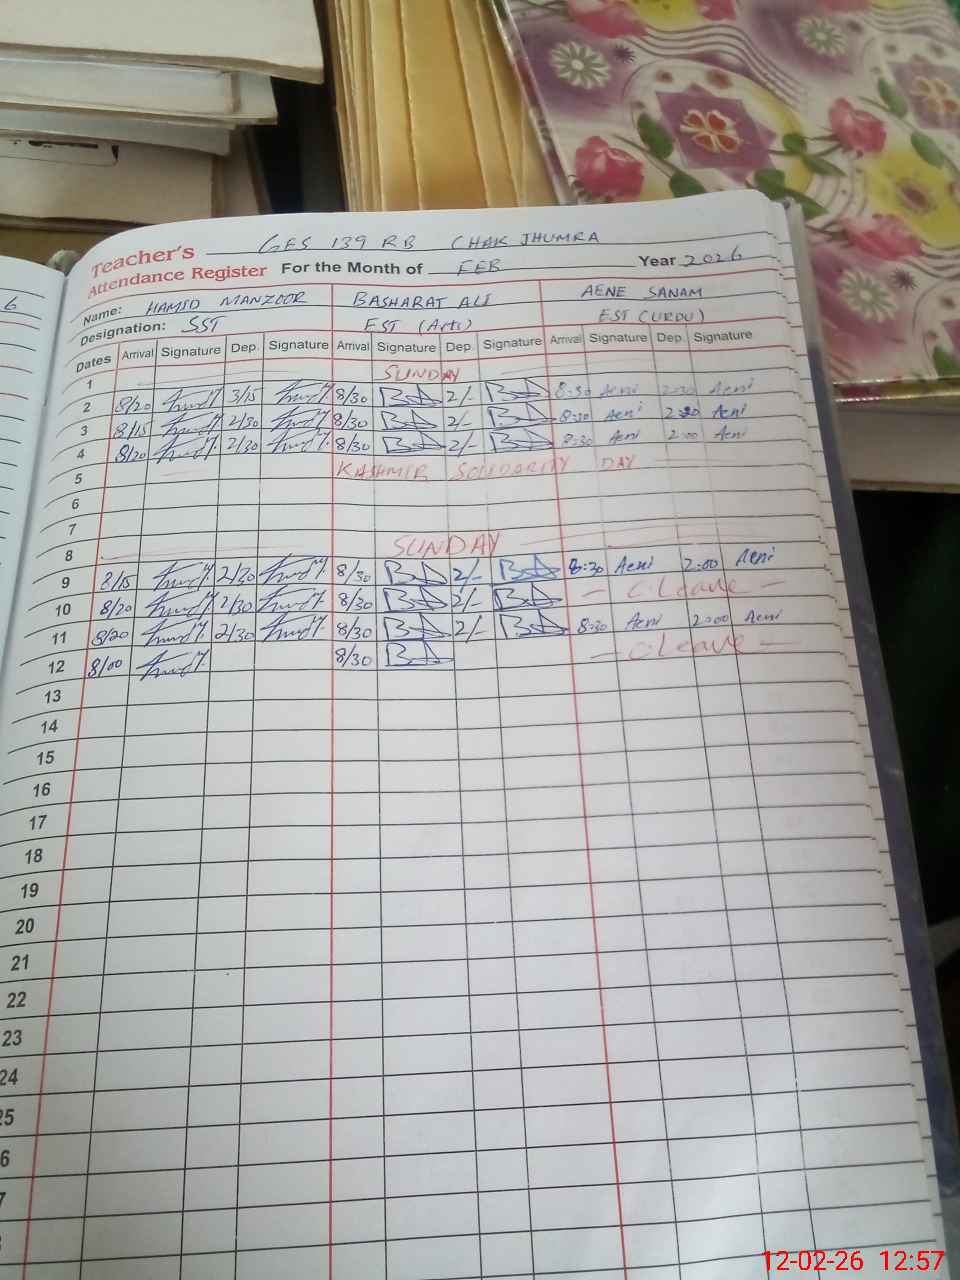 6
Teacher's GES 139 RB CHAK JHUMRA
Attendance Register For the Month of FEB Year 2026
Name: HAMID MANZOOR BASHARAT ALI AENE SANAM
Designation: SST EST (Arts) EST (URDU)
Dates Arrival Signature Dep. Signature Arrival Signature Dep. Signature Arrival Signature Dep. Signature
1 SUNDAY
2 8/20 3/15 8/30 2/- 8:30 Aeni Aeni
3 8/15 2/30 8/30 2/- 8:30 Aeni Aeni
4 8/20 2/30 8/30 2/- 8:30 Aeni 2:00 Aeni
5 KASHMIR SOLIDARITY DAY
6
7
8 SUNDAY
9 8/15 2/30 8/30 2/- 8:30 Aeni 2:00 Aeni
10 8/20 2/30 8/30 2/- - C.Leave -
11 8/20 2/30 8/30 2/- 8:30 Aeni 2:00 Aeni
12 8/00 8/30 - C.Leave -
13
14
15
16
17
18
19
20
21
22
23
24
25
6
7
12-02-26 12:57